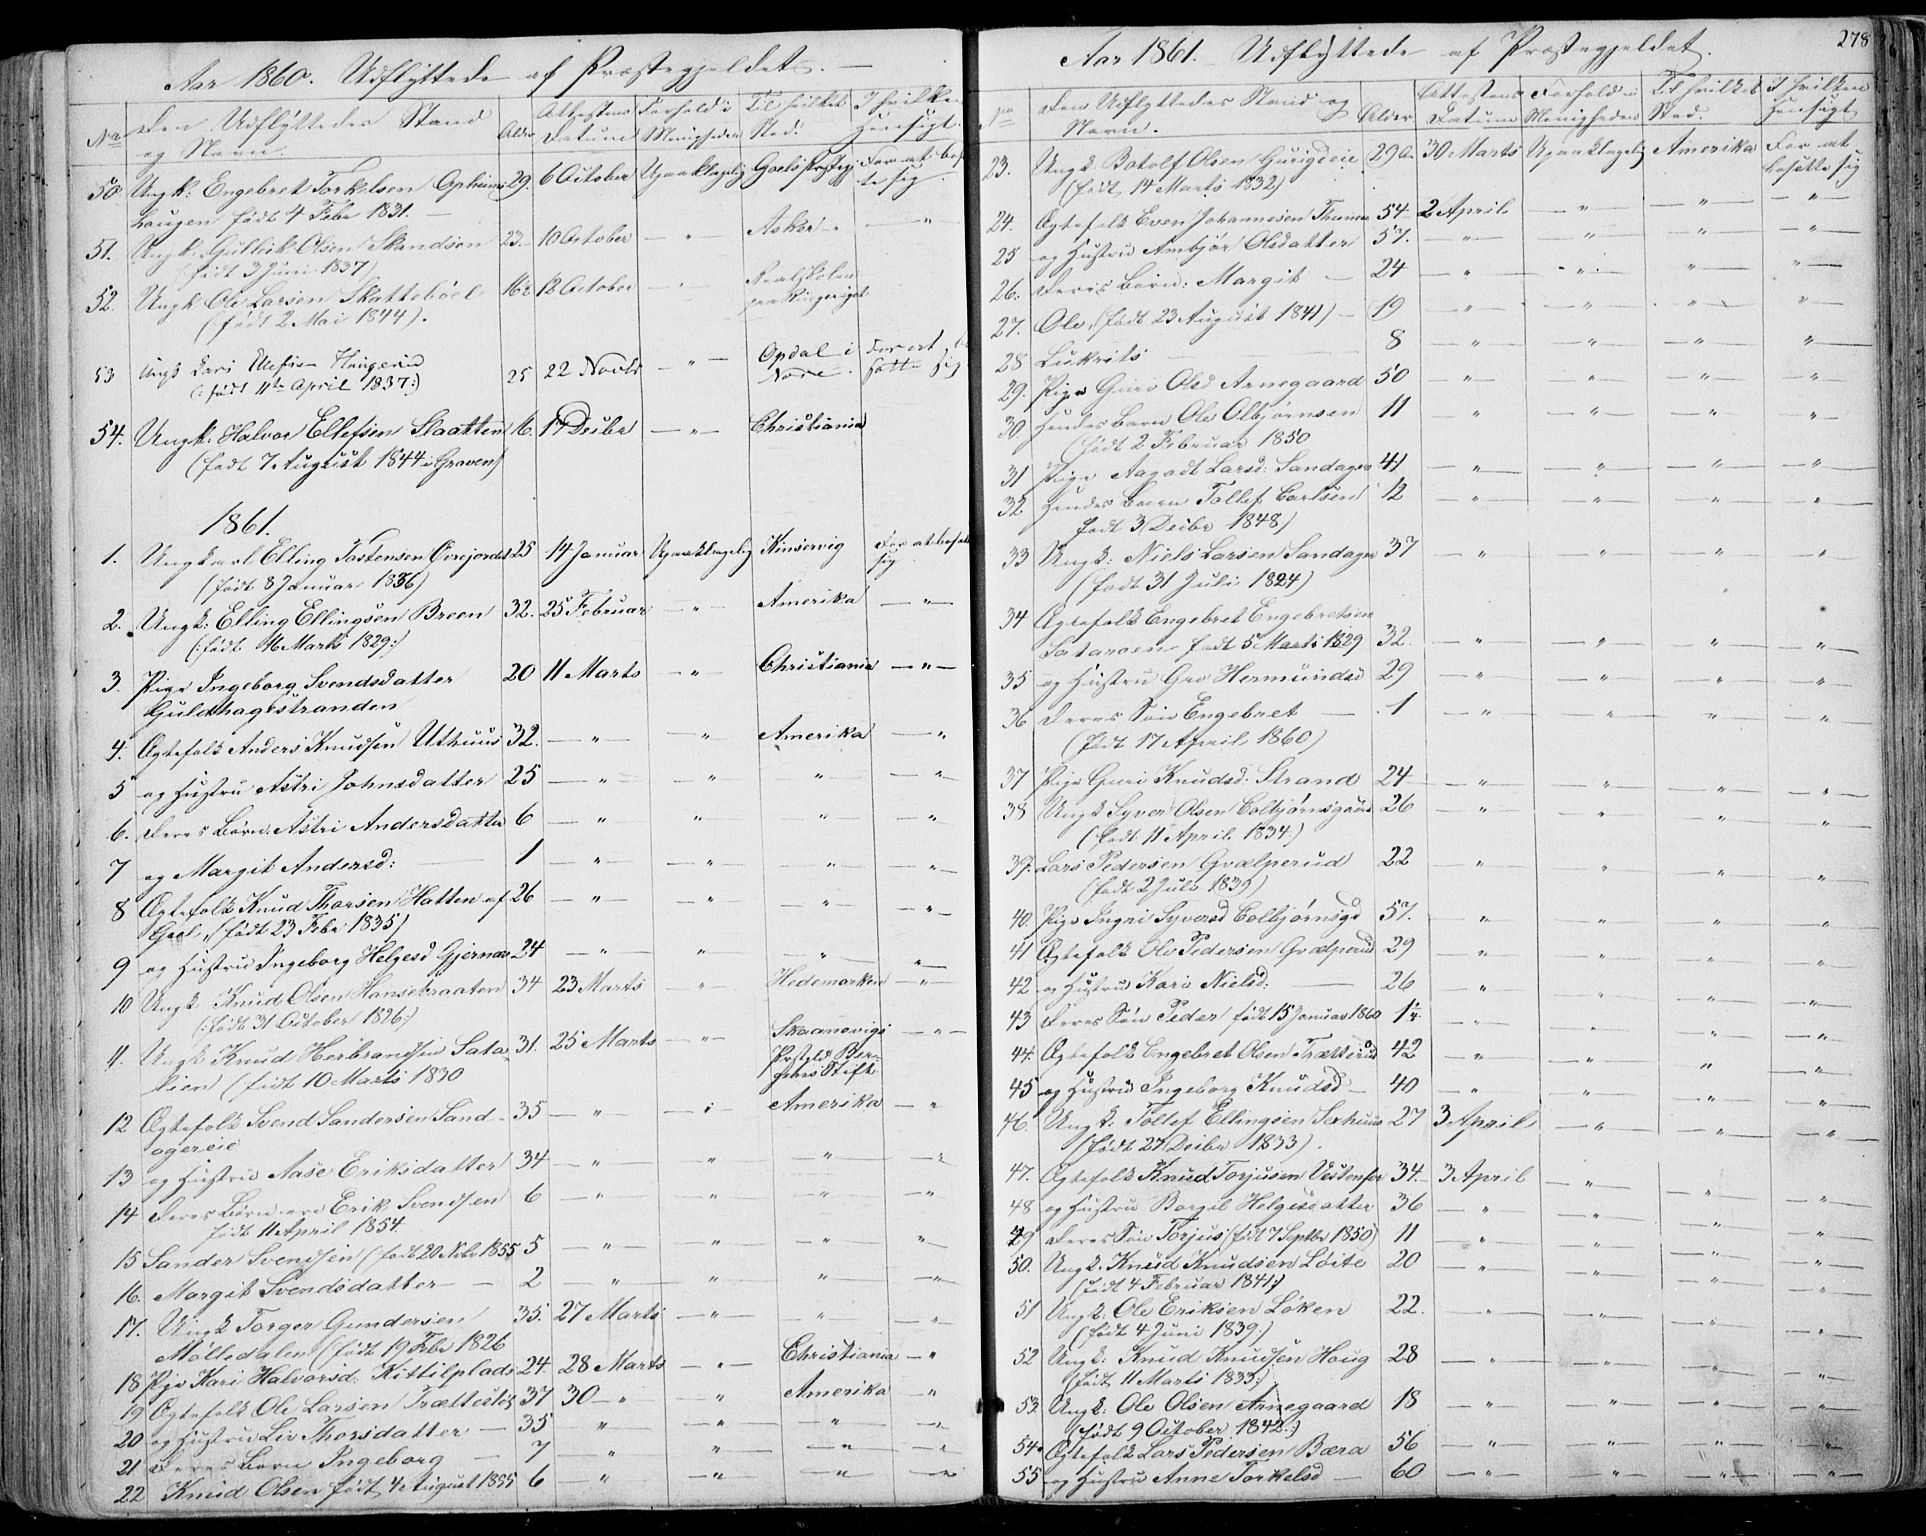 Aar 1860. Udflyttede af Præstegjeldet. —
No Den Udflyttedes Stand og Navn. Alder Attestens Datum Forhold i Menigheden Til hvilket Sted. I hvilken Hensigt.
50. Ungk: Engebret Torkelsen Opheims 29. 6 October Upaaklagelig Goels Prstgj For at bosætte sig
haugen født 4 Febr 1831. —
51. Ungk. Gullik Olsen Skandsen 23. 10 October — " Asker — "
(født 3 Juni 1837)
52. Ungk Ole Larsen Skatteböel 16½ 12 October — " Realskolen paa Ringeriget
(født 2 Mai 1844).
53 Ungk Lars Ellefsen Haugerud 25 22 Novbr — " — Opdal i Nore. For at sætte sig
(: født 11te April 1837:)
54. Ungk. Halvor Ellefsen Slaatten 16. 17 Decbr — " — Christiania
(født 7 August 1844 i Graven)
1861.
1. Ungkarl Elling Tostensen Övrejordet 25 14 Januar Upaaklagelig Kinservig For at bosætte sig
(født 8 Januar 1836)
2. Ungk: Elling Ellingsen Breen 32. 25 Februar — " Amerika — " —
(: født 16 Marts 1829:)
3. Pige Ingeborg Svendsdatter 20 11 Marts — " Christiania — " —
Guldhagestranden
4. Ægtefolk Anders Knudsen Uthuus 32. — " — " Amerika — "
5 og Hustru Astri Johnsdatter 25 — " — " " — "
6. Deres Børn. Astri Andersdatter 6 — " " " — "
7 og Margit Andersd: 1 — " — " — " — "
8 Ægtefolk Knud Thorsen Hatten af 26 — " — " — " — "
Gool, (født 23 Febr 1835)
9 og Hustru Ingeborg Helgesd Gjernæs 24 — " — " — " "
10 Ungk. Knud Olsen Hansebraaten 34 23 Marts — " Hedemarken — " —
(: født 31 October 1826:)
11. Ungk Knud Herbrandsen Sata- 31. 25 Marts — " — Skaanevigs Prstgld Ber- gens Stift — " —
lien (født 10 Marts 1830
12 Ægtefolk Svend Sandersen Sand- 35 — " — " Amerika — "
ogereie
13 og Hustru Aase Eriksdatter 34 — " — " — " — "
14 Deres Børn ere Erik Svendsen 6 — " — " — " — "
født 11 April 1854
15 Sander Svendsen (født 20 Nbr 1855 5 — " — " — " "
16. Margit Svendsdatter — 2 — " — " " — "
17. Ungk Torger Gundersen 35. 27 Marts — " — " — "
Mölledalen (født 19 Febr 1826
18 Pige Kari Halvorsd: Kittilplads 24. 28 Marts — " — Christiania — "
19 Ægtefolk Ole Larsen Trættestöe 37 30 — " — " Amerika — "
20 og Hustru Liv Thorsdatter — 35 " — " — " — "
21 Deres Børn Ingeborg — 7 " " — " — "
22 Knud Olsen født 4 August 1855 6 — " — " — " — "
Aar 1861. Udflyttede af Præstegjeldet. 278
No Den Udflyttedes Stand og Navn. Alder Attestens Datum Forhold i Menigheden Til hvilket Sted. I hvilken Hensigt
23. Ungk. Botolf Olsen Gurigdeie 29 30 Marts Upaaklagelig Amerika For at bosætte sig
(født 14 Marts 1832)
24. Ægtefolk Even Johannesen Thuneie 54 2 April — " — — " — — " —
25 og Hustru Ambjør Olsdatter 57. — " — " — " — "
26. Deres Børn: Margit — 24 — " — " — " — "
27. Ole, (født 23 August 1841) — 19 — " — " — " — "
28 Lukrits — 8 — " — " — " — "
29. Pige Guri Olsd Arnegaard 50 — " — " — " — "
30. Hendes Barn Ole Olbjørnsen 11 — " — " — " — "
(født 2 Februar 1850
31 Pige Aagodt Larsd: Sandager 41 — " — " — " — "
32 Hendes Barn Tollef Carlsen 12 — " — " — " — "
født 3 Decbr 1848)
33 Ungk: Niels Larsen Sandager 37 — " — " — " — "
(født 31 Juli 1824)
34 Ægtefolk Engebret Engebretsen
Sataroen født 5 Marts 1829 32. — " — " — " — "
35 og Hustru Gro Hermundsd 29 — " — " — " — "
36 Deres Sön Engebret — 1 — " — " — " — "
(født 17 April 1860)
37 Pige Guri Knudsd. Strand 24 — " — " — " — "
38 Ungk Syver Olsen Colbjørnsgaard 26 — " — " — " — "
(født 11 April 1834:)
39. Lars Pedersen Gvælperud 22 — " — " — " — "
(født 2 Juli 1839)
40. Pige Ingri Syversd Colbjørnsgd 57. — " — " — " — "
41 Ægtefolk Ole Pedersen Gvælperud 29 — " — " — " — "
42 og Hustru Kari Nielsd: 26 — " — " — " — "
43 Deres Sön Peder født 15 Januar 1860 1¼ — " — " — " — "
44. Ægtefolk Engebret Olsen Trætterud 42 — " — " — " — "
45 og Hustru Ingeborg Knudsd — 40 — " — " — " — "
46. Ungk: Tollef Ellingsen Sexhuus 27 3 April — " — " — "
(født 27 Decbr 1833).
47. Ægtefolk Knud Torjusen Vestenfor 34. 3 April — " — " — "
48 og Hustru Borgil Helgesdatter 36 — " — " — " — "
49 Deres Sön Torjus (født 7 Septbr 1850) 11 — " — " — " — "
50. Ungk. Knud Knudsen Löite 20 — " — " — " — "
(født 4 Februar 1841:)
51 Ungk: Ole Eriksen Löken 22. — " — " — " — "
(født 4 Juni 1839:)
52 Ungk: Knud Knudsen Houg 28 — " — " — " — "
(født 11 Marts 1833:)
53. Ungk: Ole Olsen Arnegaard 18 — " — " — " — "
(født 9 October 1842:)
54. Ægtefolk Lars Pedersen Bæra 56 — " — " — " — "
55 og Hustru Anne Torkelsd — 60 — " — " — " — "